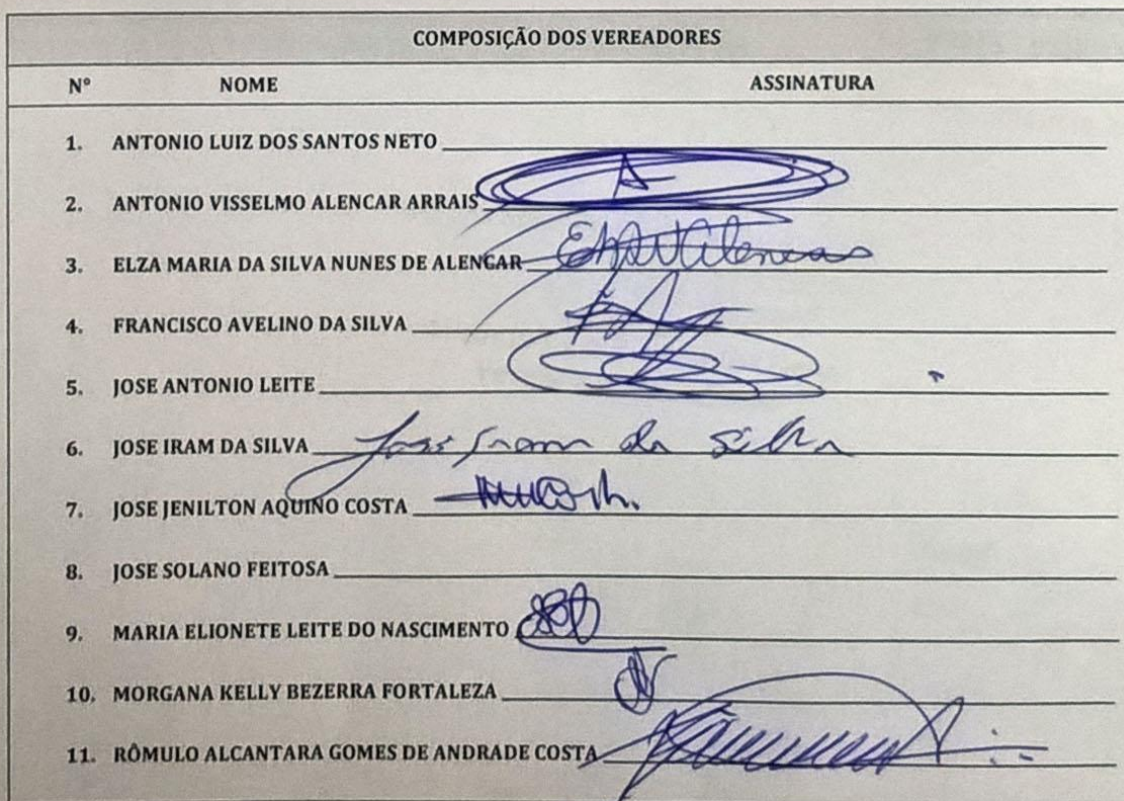 COMPOSIÇÃO DOS VEREADORES
Nº NOME ASSINATURA
1. ANTONIO LUIZ DOS SANTOS NETO
2. ANTONIO VISSELMO ALENCAR ARRAIS A
3. ELZA MARIA DA SILVA NUNES DE ALENCAR
4. FRANCISCO AVELINO DA SILVA
5. JOSE ANTONIO LEITE
6. JOSE IRAM DA SILVA Jose Iram da Silva
7. JOSE JENILTON AQUINO COSTA
8. JOSE SOLANO FEITOSA
9. MARIA ELIONETE LEITE DO NASCIMENTO
10. MORGANA KELLY BEZERRA FORTALEZA
11. RÔMULO ALCANTARA GOMES DE ANDRADE COSTA